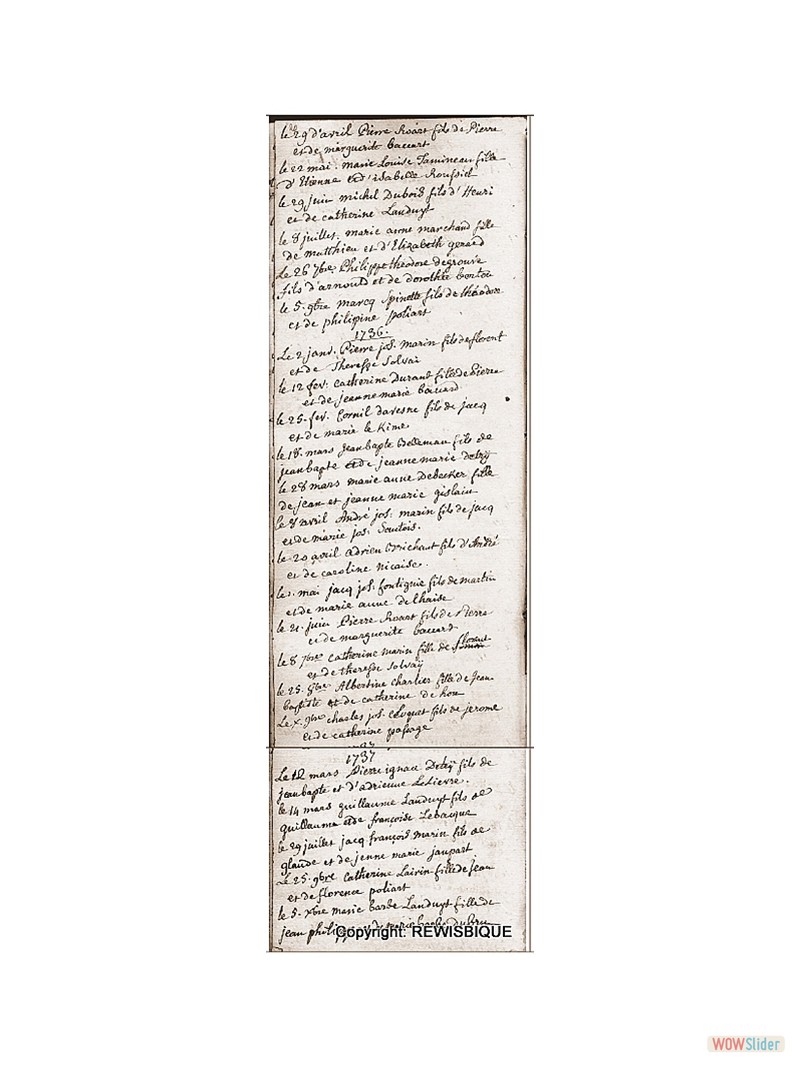 le 29 d'avril Pierre Roart fils de Pierre
et de marguerite baccart
le 22 mai. marie Louise Tamineau fille
d'Etienne et d'isabelle Roussiel
le 29 juin michel Dubois fils d'Henri
et de catherine Landuyt
le 8 juillet. marie anne marchand fille
de matthieu et d'Elizabeth gerard
Le 26 7bre Philippe theodore degrouve
fils d'arnould et de dorothée
le 5. 9bre marcq Spinette fils de théodore
et de philipine poliart
1736.
Le 2 janv. Pierre jos. marin fils de florent
et de Theresse Solvai
le 12 fev. catherine Durand fille de Pierre
et de jeanne marie
le 25. fev. Cornil davesne fils de jacq
et de marie le Kime
le 18. mars jean bapte fils de
jean bapte et de jeanne marie
le 28 mars marie anne Debecker fille
de jean et jeanne marie gislain
le 8 avril André jos. marin fils de jacq
et de marie jos. Sautois.
le 20 avril adrien Brichaut fils d'André
et de caroline nicaise.
le mai jacq jos. fontignie fils de martin
et de marie anne delhaise
le 21. juin Pierre Roart fils de Pierre
et de marguerite baccart
le 8 7bre catherine marin fille de florent
et de theresse solvaÿ
le 25. 8bre Albertine charlier fille de jean
baptiste et de catherine de hou
Le x. 9bre charles jos. cloquet fils de jerome
et de catherine passage
1737
Le 12 mars Pierre ignace fils de
jean bapte et d'adrienne LeLievre.
le 14 mars guillaume Landuyt fils de
guillaume et de françoise Lebacque
le 29 juillet jacq françois marin fils de
glaude et de jenne marie jaupart
Le 25. 9bre catherine Lairin fille de jean
et de florence poliart
le 5. xbre marie barbe Landuyt fille de
jean
Copyright: REWISBIQUE
WOWSlider